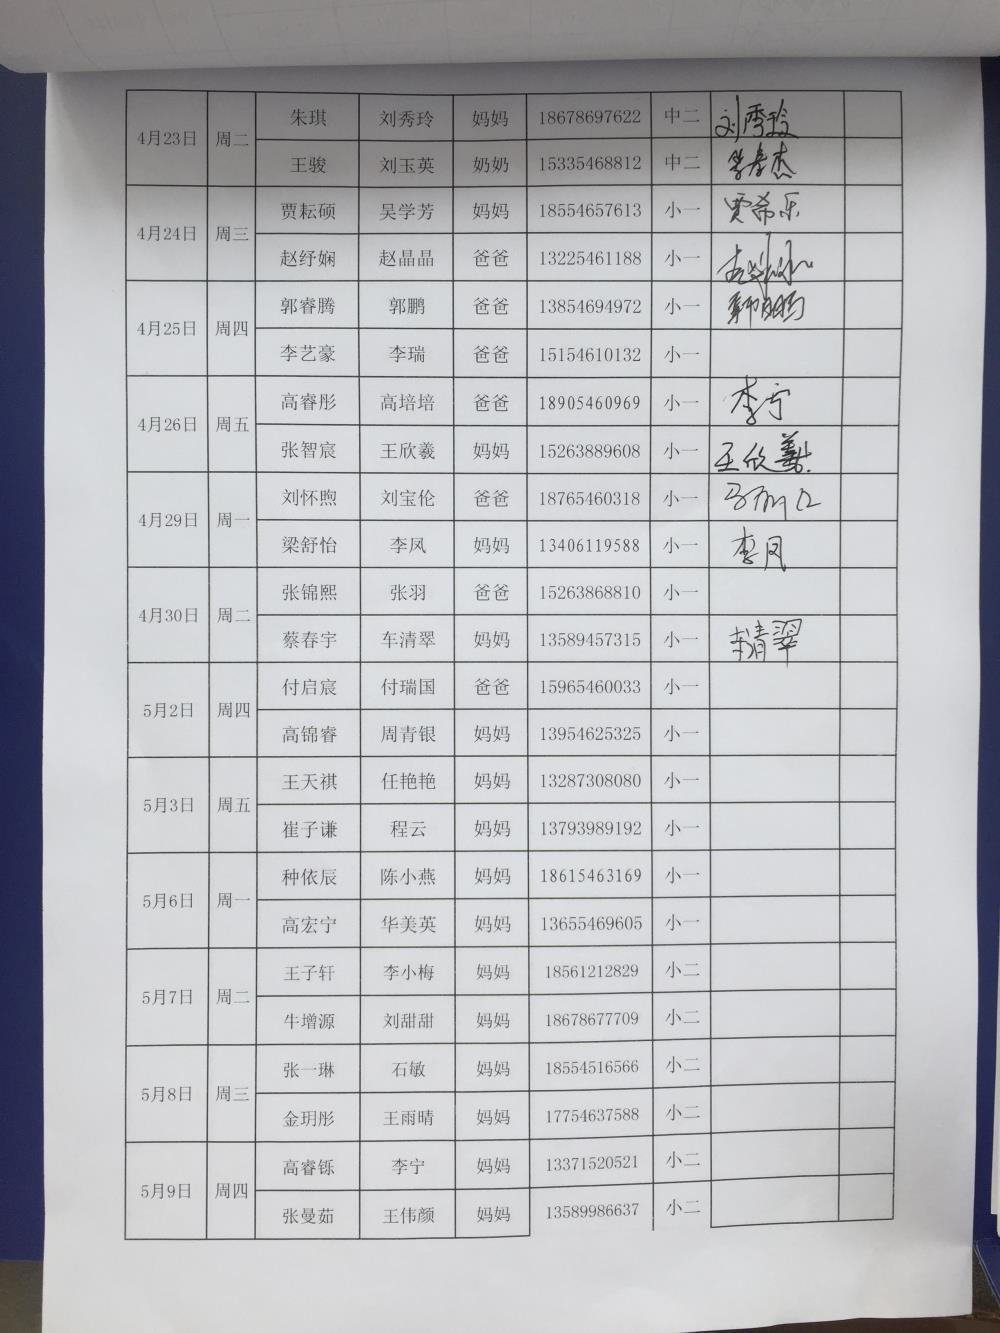 4月23日 周二 朱琪 刘秀玲 妈妈 18678697622 中二 刘秀玲
王骏 刘玉英 奶奶 15335468812 中二
4月24日 周三 贾耘硕 吴学芳 妈妈 18554657613 小一 贾希乐
赵纾娴 赵晶晶 爸爸 13225461188 小一
4月25日 周四 郭睿腾 郭鹏 爸爸 13854694972 小一 郭鹏
李艺豪 李瑞 爸爸 15154610132 小一
4月26日 周五 高睿彤 高培培 爸爸 18905460969 小一 李宁
张智宸 王欣羲 妈妈 15263889608 小一 王欣羲
4月29日 周一 刘怀煦 刘宝伦 爸爸 18765460318 小一
梁舒怡 李凤 妈妈 13406119588 小一 李凤
4月30日 周二 张锦熙 张羽 爸爸 15263868810 小一
蔡春宇 车清翠 妈妈 13589457315 小一 车清翠
5月2日 周四 付启宸 付瑞国 爸爸 15965460033 小一
高锦睿 周青银 妈妈 13954625325 小一
5月3日 周五 王天祺 任艳艳 妈妈 13287308080 小一
崔子谦 程云 妈妈 13793989192 小一
5月6日 周一 种依辰 陈小燕 妈妈 18615463169 小一
高宏宁 华美英 妈妈 13655469605 小一
5月7日 周二 王子轩 李小梅 妈妈 18561212829 小二
牛增源 刘甜甜 妈妈 18678677709 小二
5月8日 周三 张一琳 石敏 妈妈 18554516566 小二
金玥彤 王雨晴 妈妈 17754637588 小二
5月9日 周四 高睿铄 李宁 妈妈 13371520521 小二
张曼茹 王伟颜 妈妈 13589986637 小二